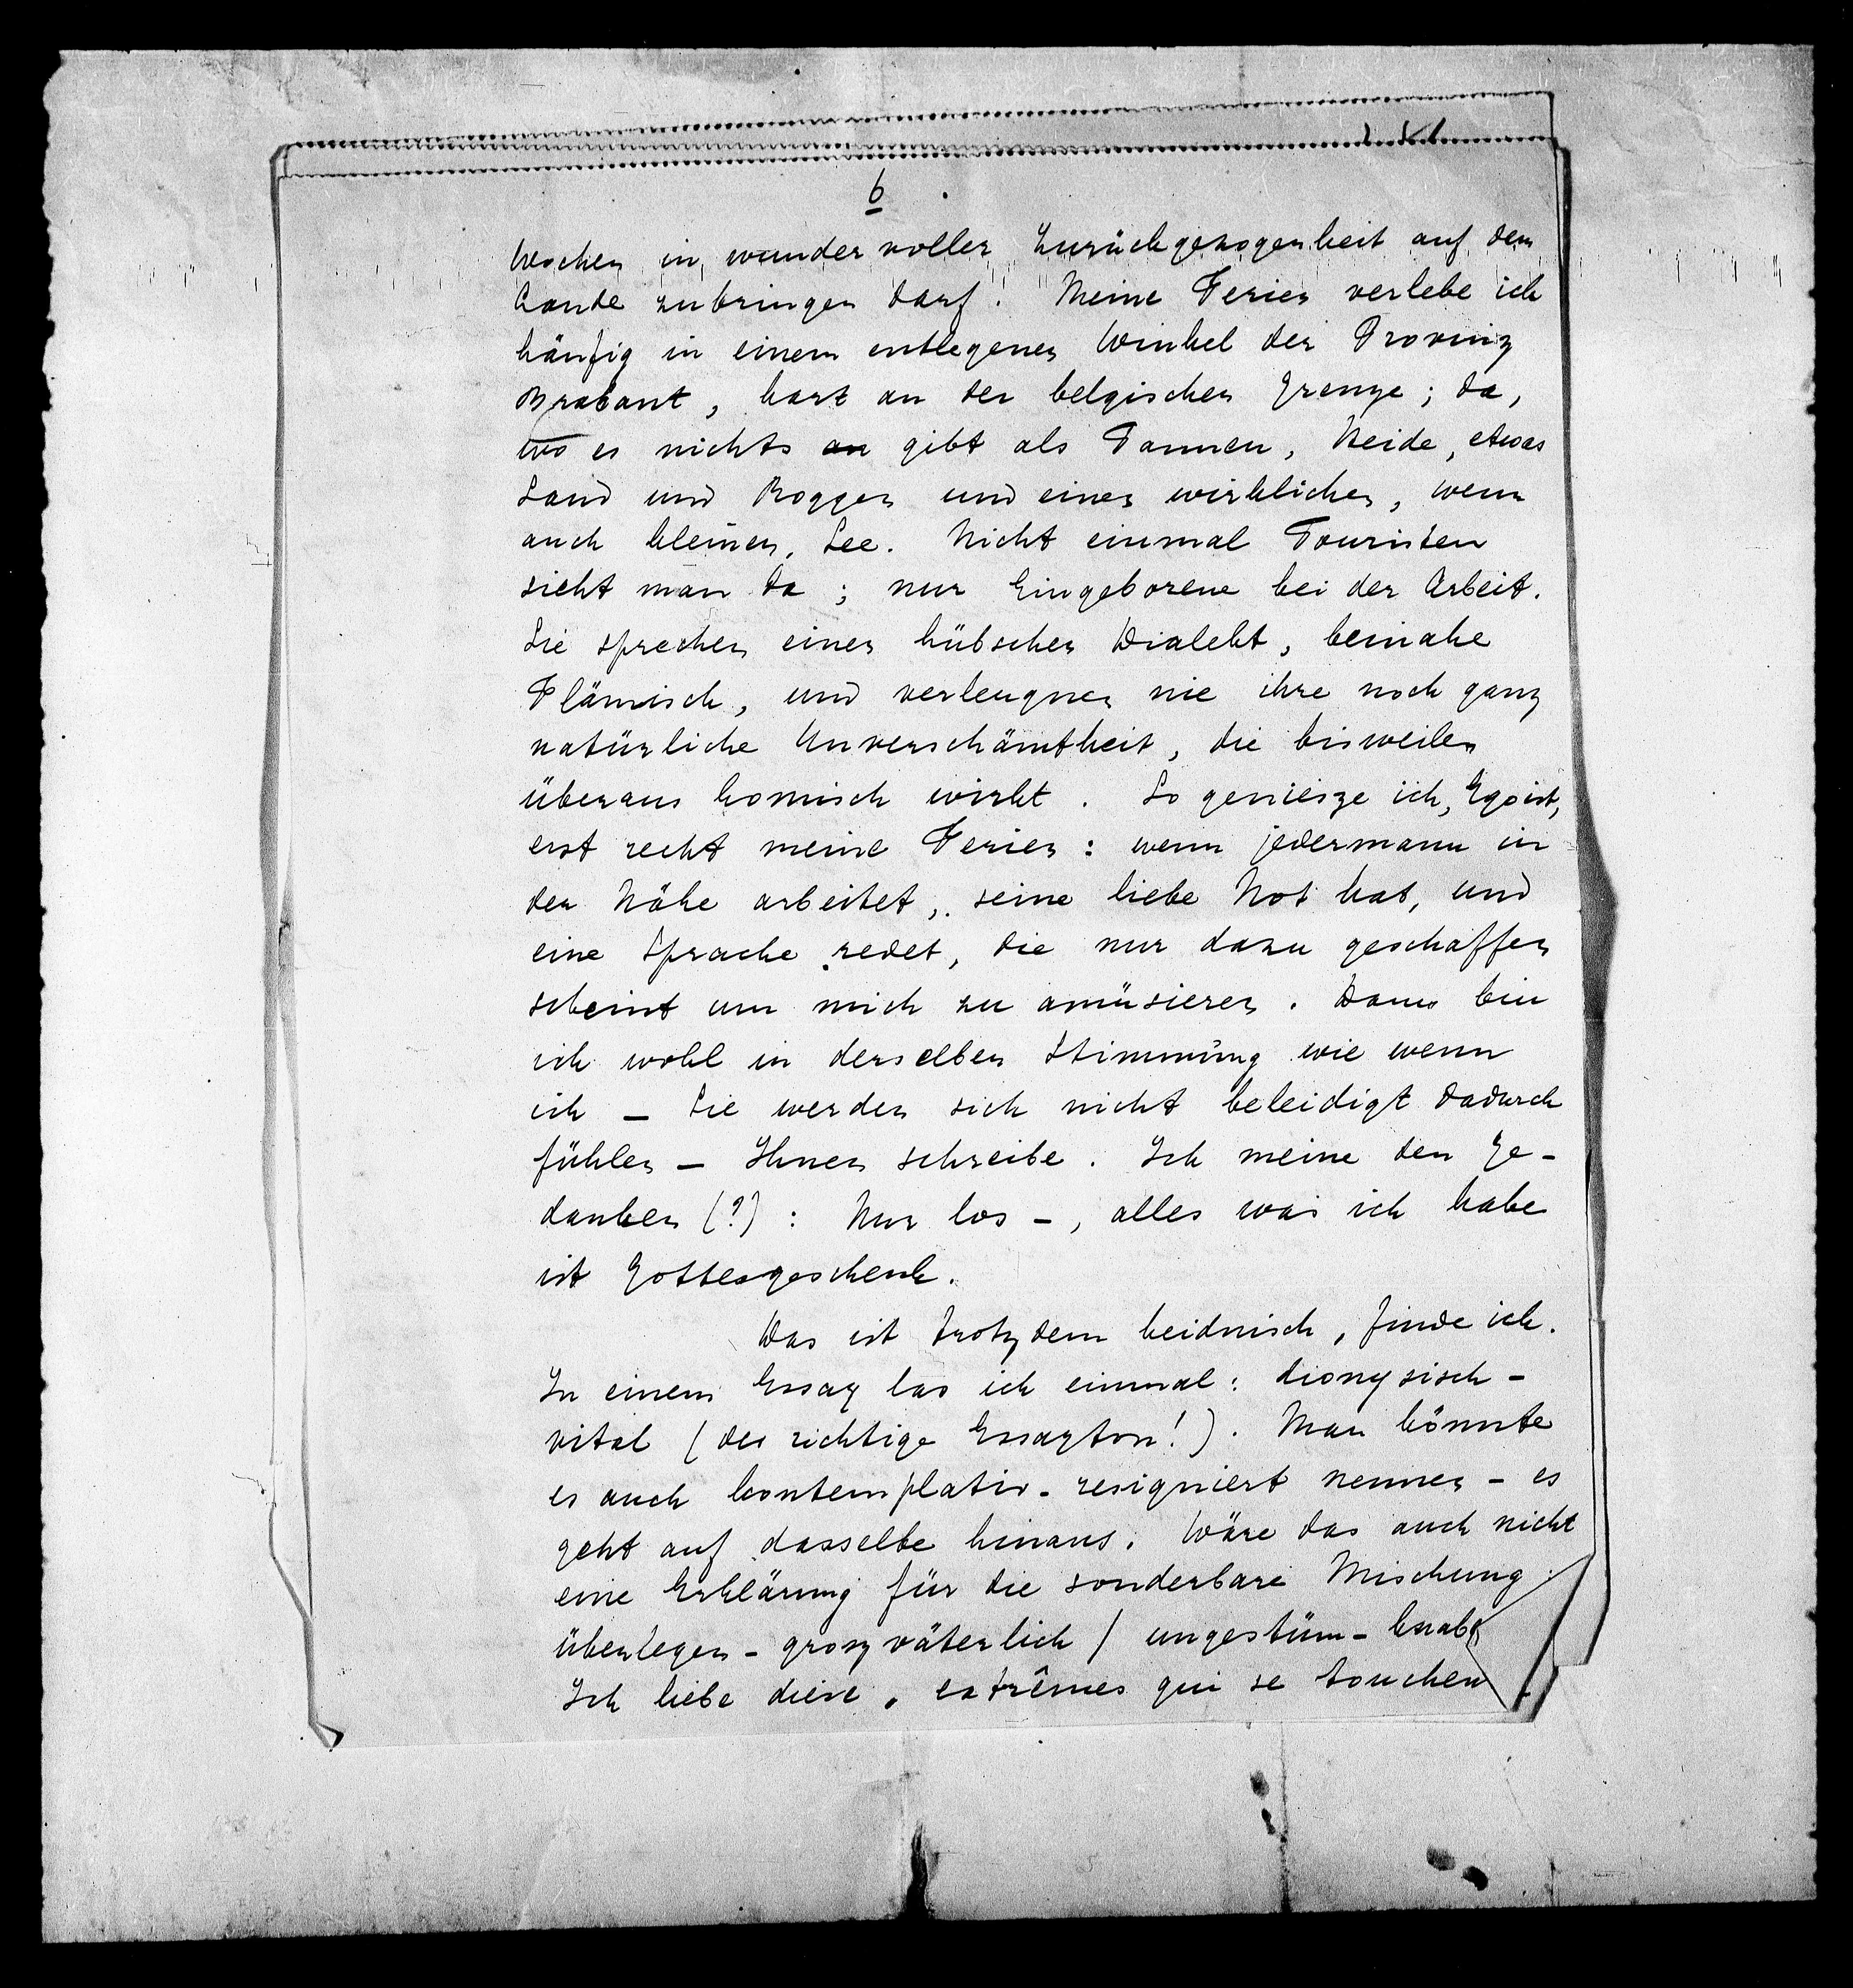 6
Wochen in wundervoller Zurückgezogenheit auf dem
Lande zubringen darf. Meine Ferien verlebe ich
häufig in einem entlegenen Winkel der Provinz
Brabant, hart an der belgischen Grenze; da,
wo es nichts an gibt als Tannen, Heide, etwas
Sand und Roggen und einen wirklichen, wenn
auch kleinen, See. Nicht einmal Touristen
sieht man da; nur Eingeborene bei der Arbeit.
Sie sprechen einen hübschen Dialekt, beinahe
Flämisch, und verleugnen nie ihre noch ganz
natürliche Unverschämtheit, die bisweilen
überaus komisch wirkt. So geniesze ich, Egoist,
erst recht meine Ferien: wenn jedermann in
der Nähe arbeitet, seine liebe Not hat, und
eine Sprache redet, die nur dazu geschaffen
scheint um mich zu amüsieren. Dann bin
ich wohl in derselben Stimmung wie wenn
ich – Sie werden sich nicht beleidigt dadurch
fühlen – Ihnen schreibe. Ich meine den Ge-
danken (?): Nur los –, alles was ich habe
ist Gottesgeschenk.
Das ist trotzdem heidnisch, finde ich.
In einem Essay las ich einmal: dionysisch-
vital (der richtige Essayton!). Man könnte
es auch kontemplativ-resigniert nennen – es
geht auf dasselbe hinaus. Wäre das auch nicht
eine Erklärung für die sonderbare Mischung
überlegen-groszväterlich / ungestüm-
Ich liebe diese „extrêmes qui se touchent